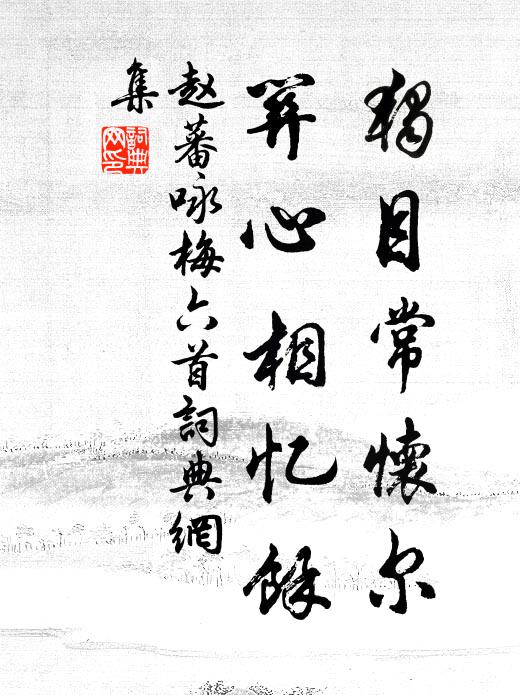 獨目常懷尔
心相忆餘
赵蕃咏梅六首詞典網
集
詞典
网印